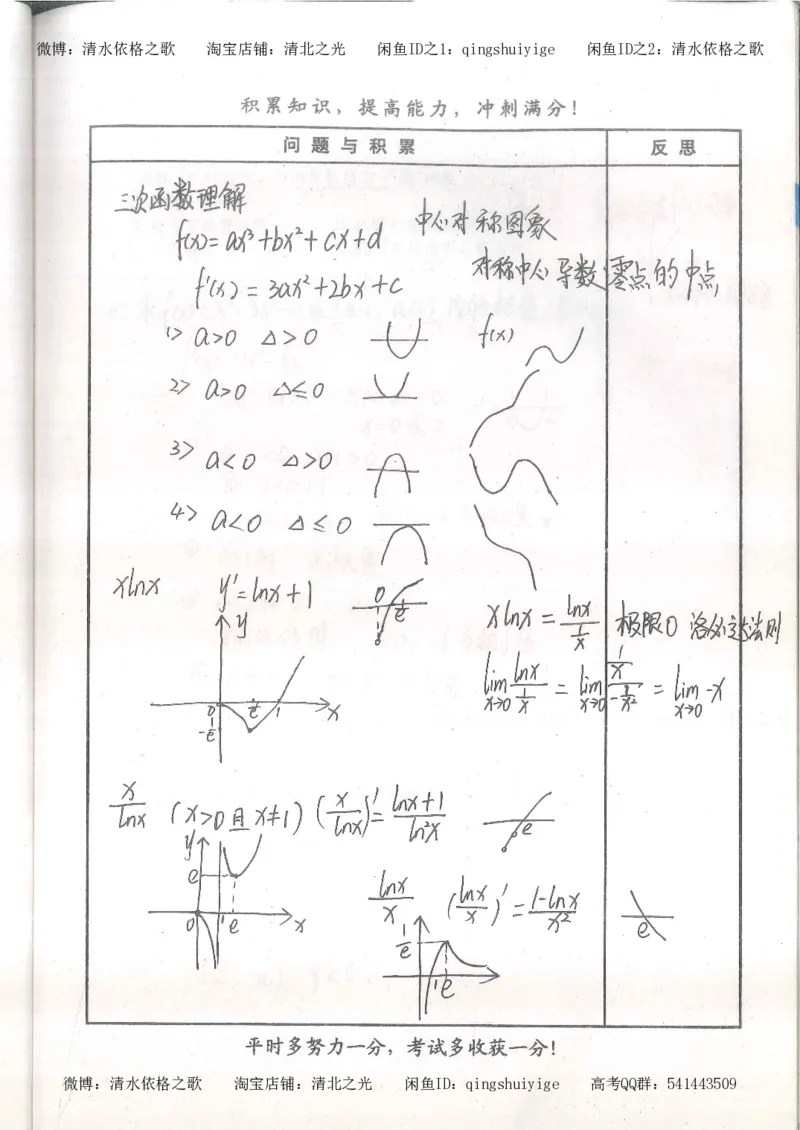 微博：清水依格之歌 淘宝店铺：清北之光 闲鱼ID之1：qingshuiyige 闲鱼ID之2：清水依格之歌
积累知识，提高能力，冲刺满分！
问题与积累 反思
三次函数理解
f(x)=ax³+bx²+cx+d 中心对称图象
f'(x)=3ax²+2bx+c 对称中心导数零点的中点
1> a>0 △>0 f(x)
2> a>0 △≤0
3> a<0 △>0
4> a<0 △≤0
xlnx y'=lnx+1 0 1/e
xlnx = lnx/(1/x) 极限0 洛必达法则
lim x→0 lnx/(1/x) = lim x→0 (1/x)/(-1/x²) = lim x→0 -x
y 0 1/e 1 x -1/e
x/lnx (x>0且x≠1) (x/lnx)'= lnx+1/ln²x e
y e 0 1 e x
lnx/x (lnx/x)' = 1-lnx/x² e
1/e 1 e
平时多努力一分，考试多收获一分！
微博：清水依格之歌 淘宝店铺：清北之光 闲鱼ID：qingshuiyige 高考QQ群：541443509